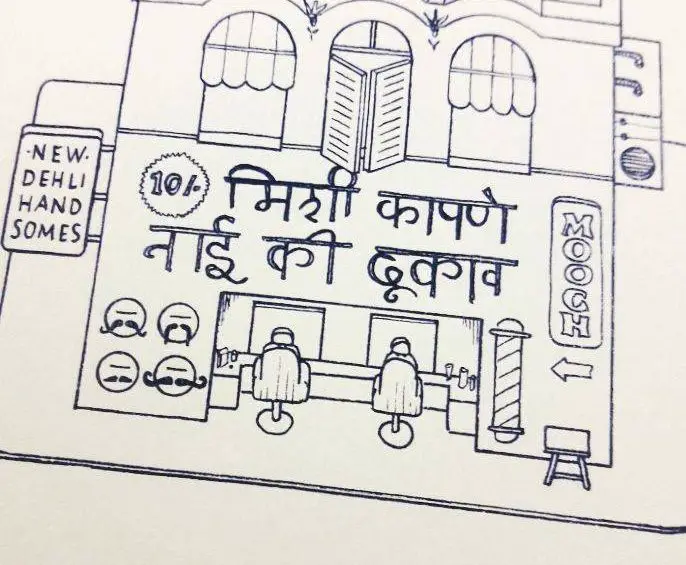 ·NEW·
DEHLI
HAND
SOMES
10/-
मिशी कापणे
नाई की दूकाव
MOOCH